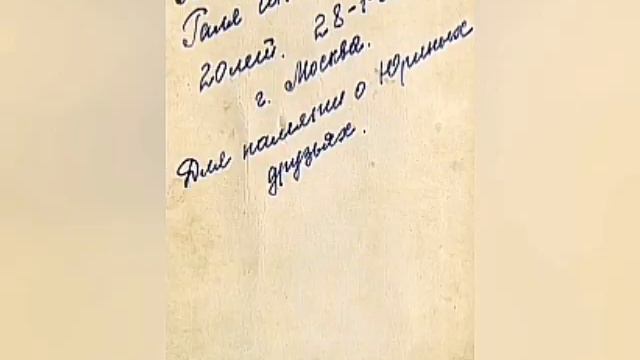 Галя
20 лет. 28-
г. Москва.
Для памяти о Юриных
друзьях.